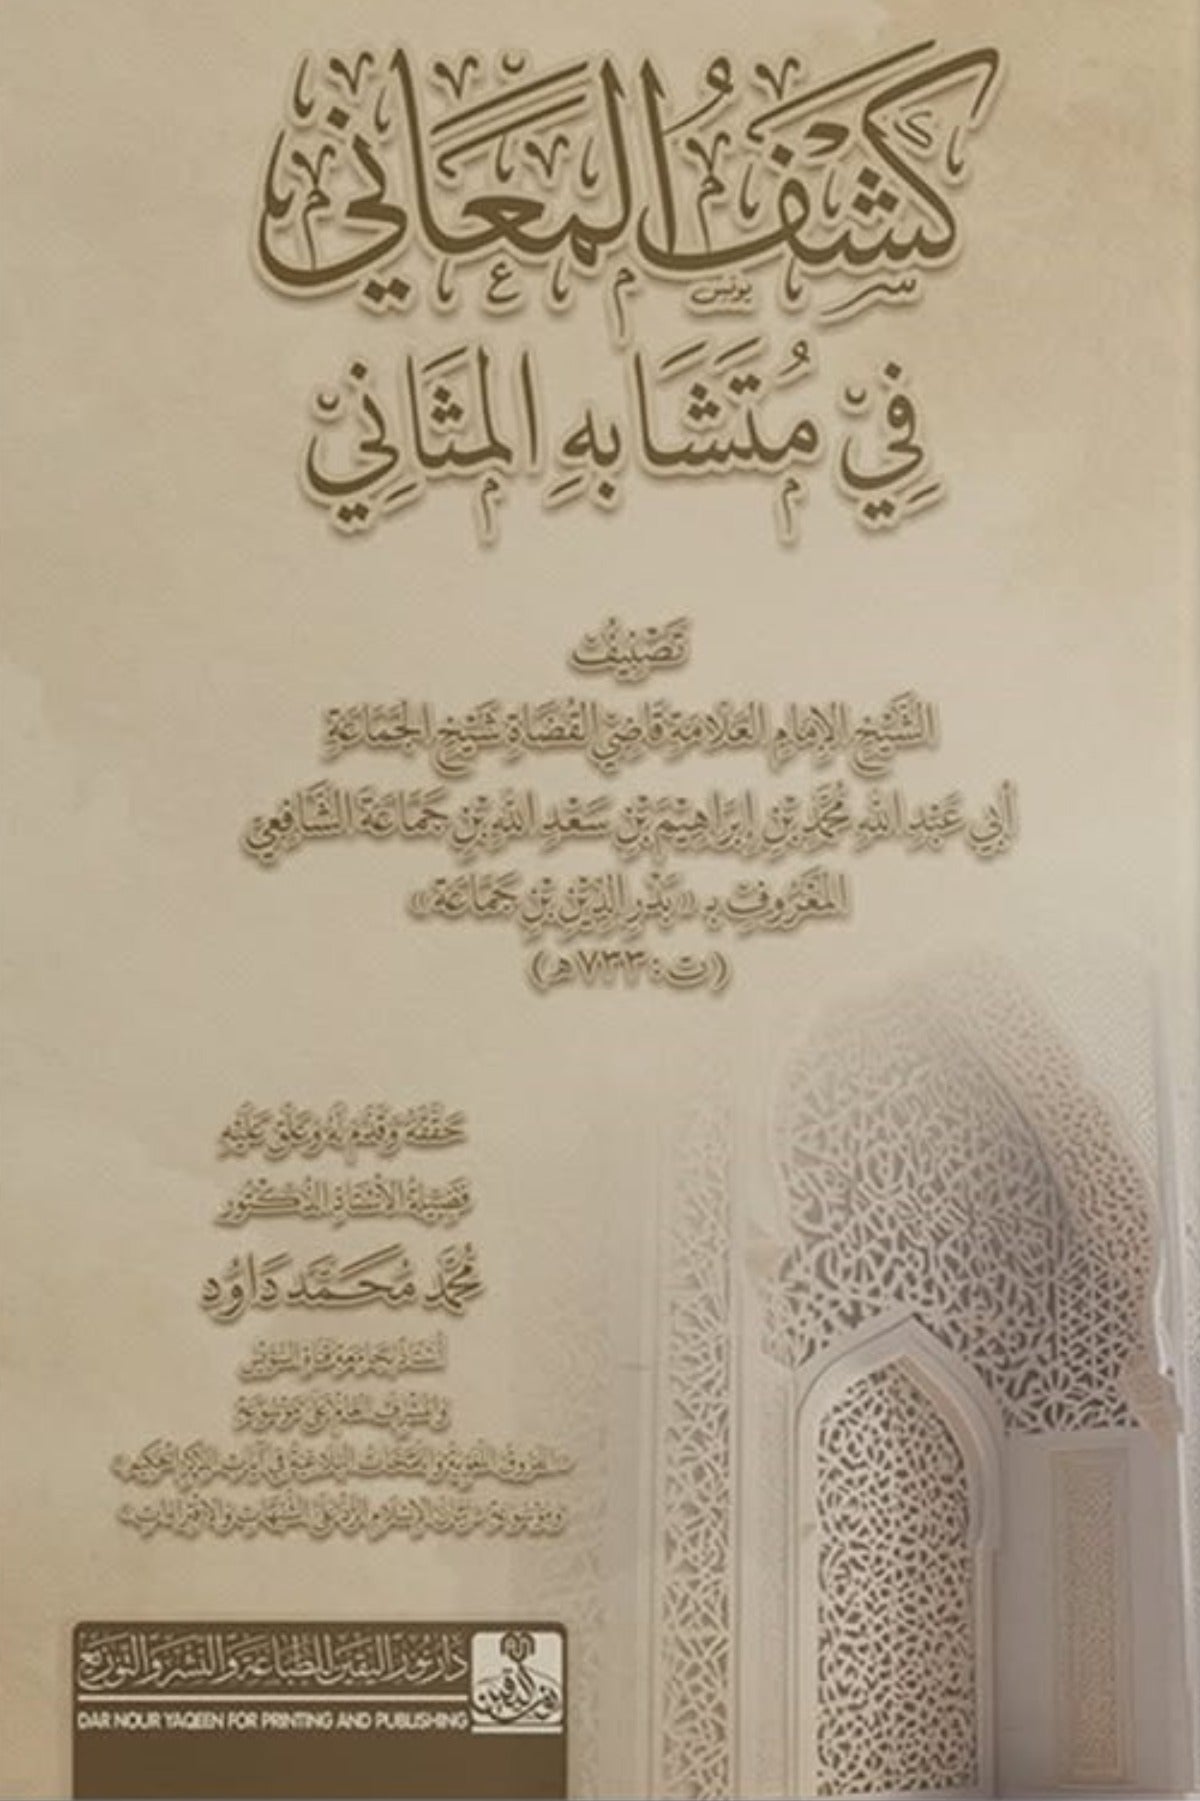 كَشْفُ المَعَانِي
فِيْ مُتَشَابِهِ المَثَانِيْ
تَصْنِيفُ
الشَّيْخِ الإِمَامِ العَلَّامَةِ قَاضِي القُضَاةِ شَيْخِ الجَمَاعَةِ
أَبِي عَبْدِ اللهِ مُحَمَّدِ بْنِ إِبْرَاهِيْمَ بْنِ سَعْدِ اللهِ بْنِ جَمَاعَةَ الشَّافِعِيِّ
المَعْرُوفِ بِـ «بَدْرِ الدِّيْنِ بْنِ جَمَاعَةَ»
(ت: ٧٣٣هـ)
حَقَّقَهُ وَقَدَّمَ لَهُ وَعَلَّقَ عَلَيْهِ
فَضِيلَةُ الأُسْتَاذِ الدُّكْتُورِ
مُحَمَّد مُحَمَّد دَاوُد
أُسْتَاذٌ بِجَامِعَةِ قَنَاةِ السُّوَيْسِ
وَالمُشْرِفُ العَامُّ عَلَى مَوْسُوعَةِ
دار نور اليقين للطباعة والنشر والتوزيع
نور اليقين
DAR NOUR YAQEEN FOR PRINTING AND PUBLISHING